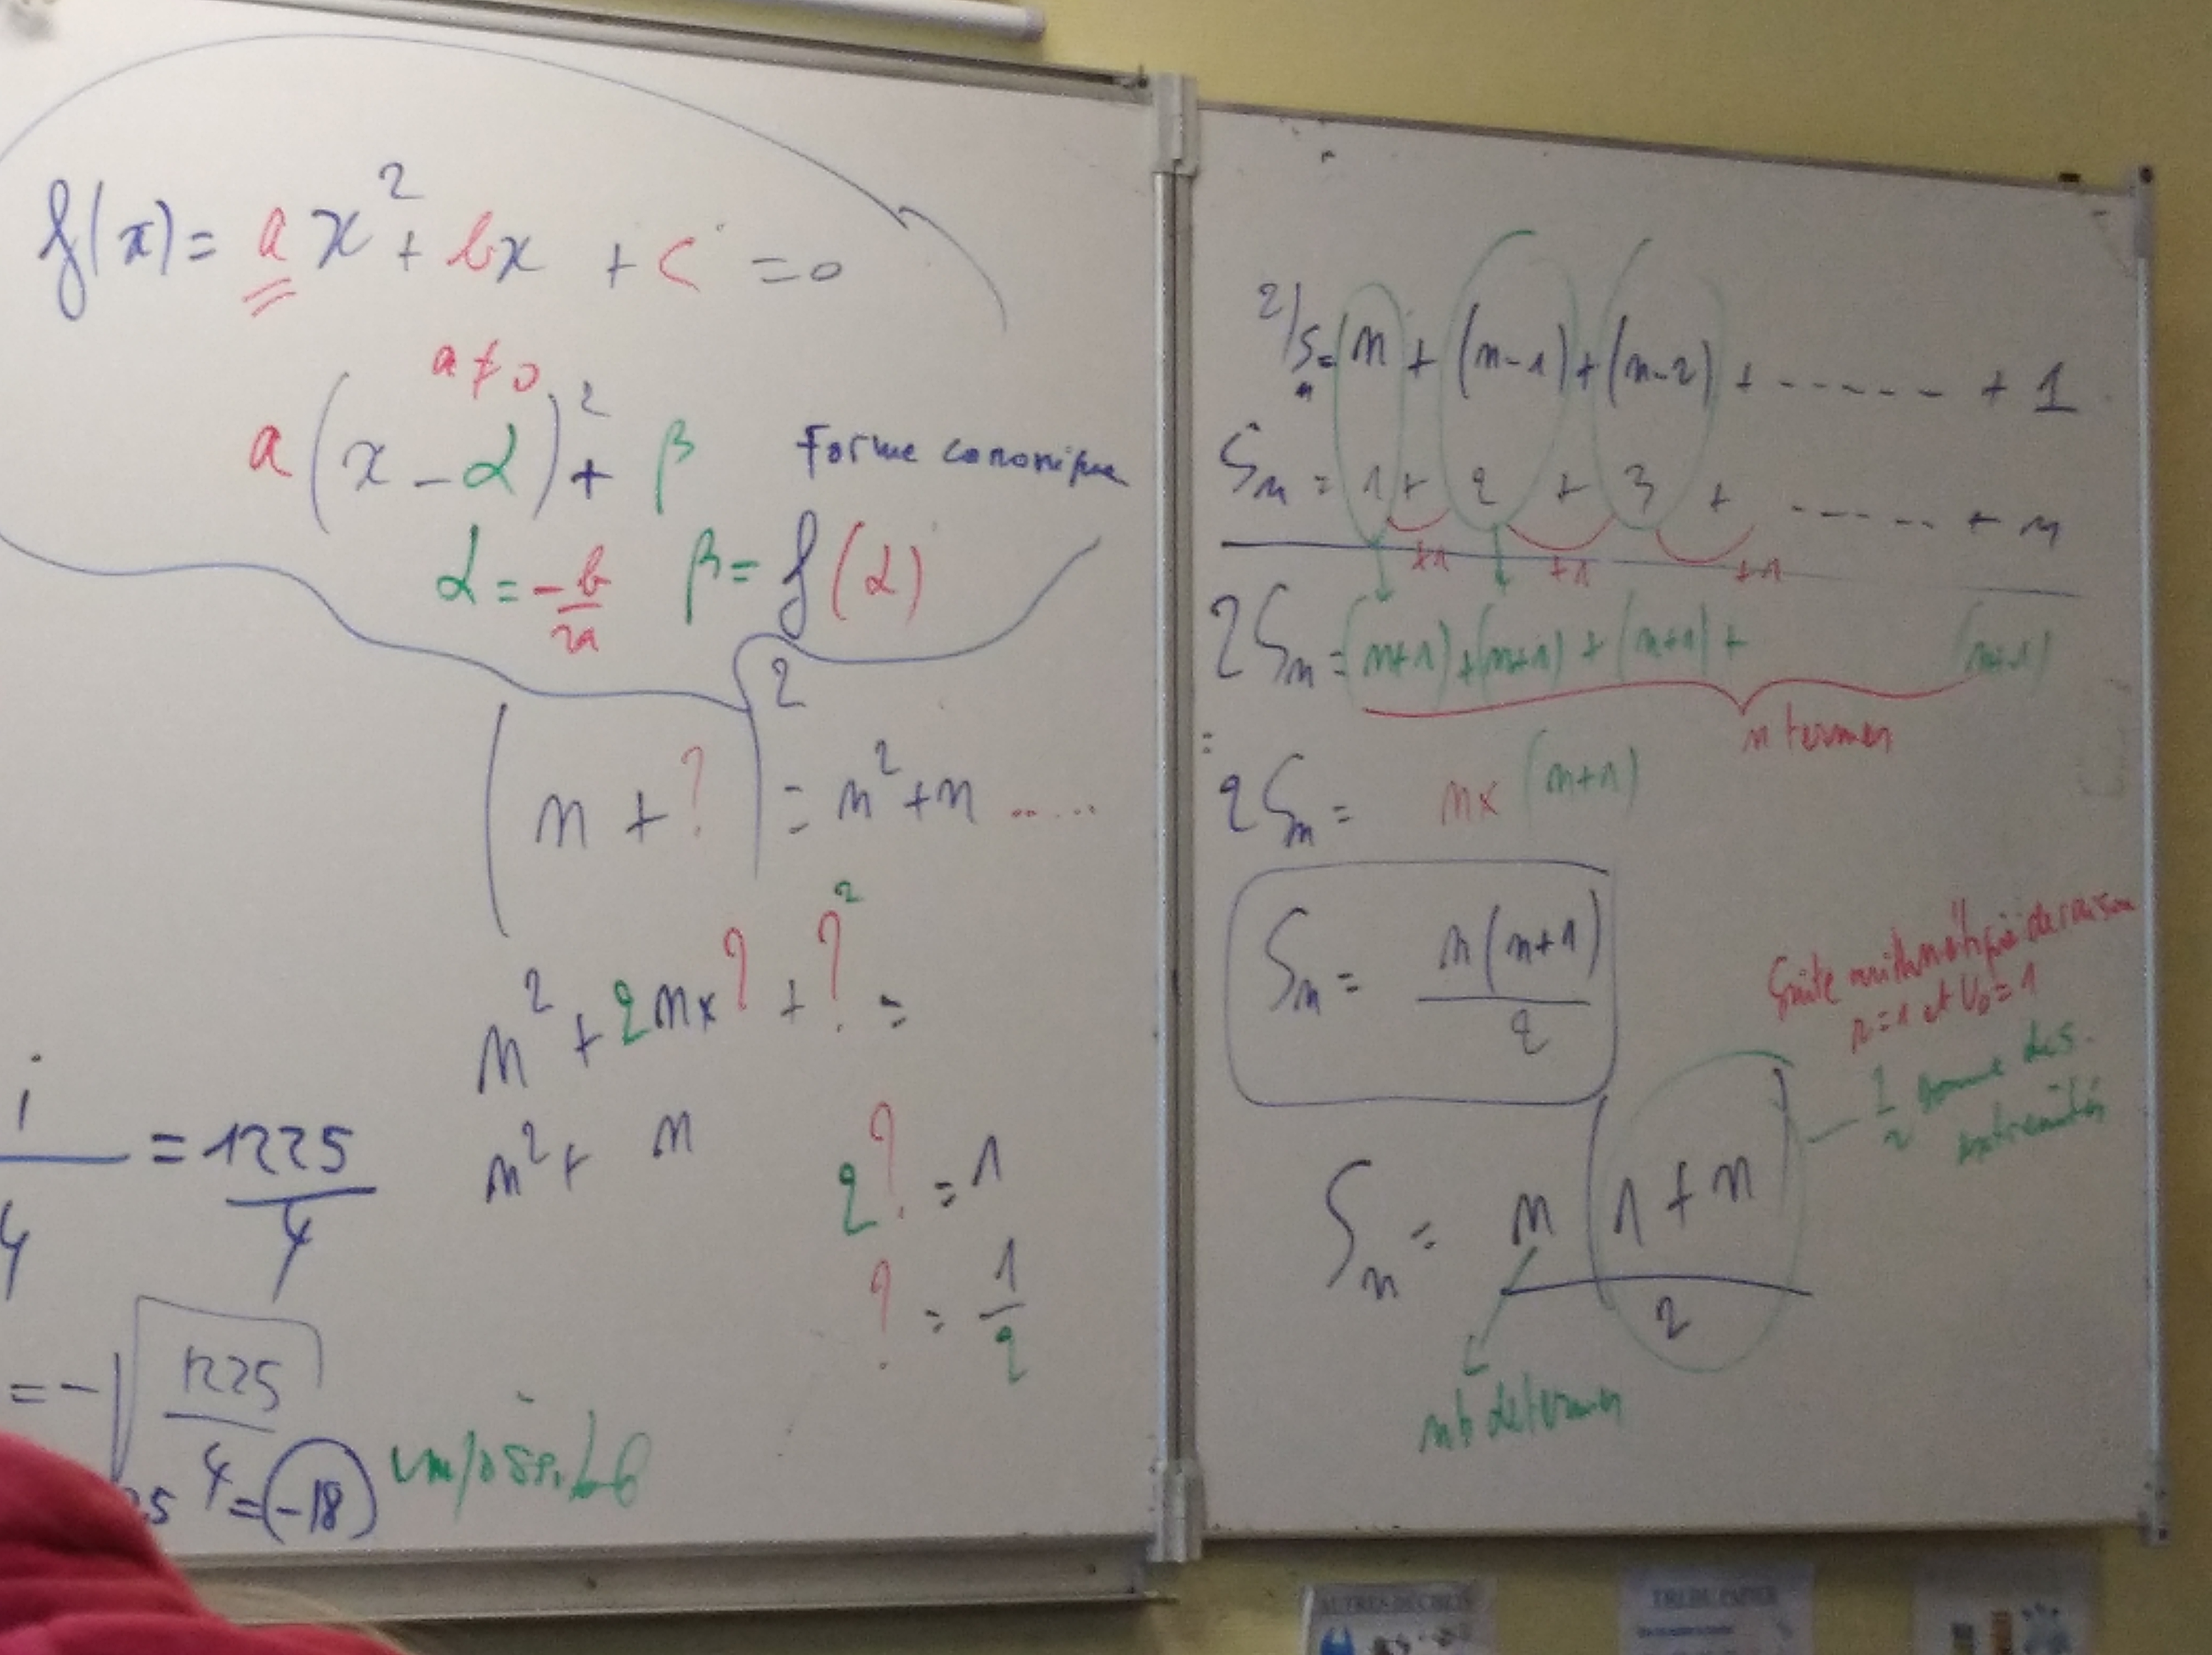 f(x) = ax² + bx + c = 0
a ≠ 0
a(x - α)² + β Forme canonique
α = -b/2a β = f(α)
(n + ?)² = n² + n .....
n² + 2n×? + ?² =
n² + n
2? = 1
? = 1/2
= 1225/4
= -√(1225/4)
= (-18) impossible
2/ Sn = n + (n-1) + (n-2) + ------ + 1
Sn = 1 + 2 + 3 + ------ + n
+1 +1 +1
2Sn = (n+1) + (n+1) + (n+1) + (n+1)
n termes
2Sn = n× (n+1)
Sn = n(n+1)/2
Suite arithmétique de raison
r=1 et U0=1
Sn = n(1+n)/2
1/2 somme des
extremités
nb de termes
AUTRES DÉCHETS
TRI DU PAPIER